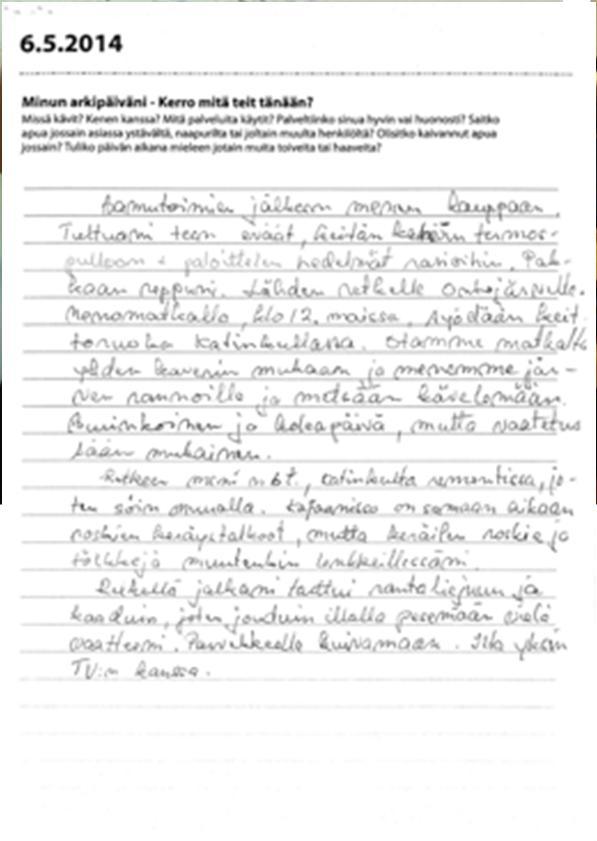 6.5.2014
Minun arkipäiväni - Kerro mitä teit tänään?
Missä kävit? Kenen kanssa? Mitä palveluita käytit? Palveltiinko sinua hyvin vai huonosti? Saitko
apua jossain asiassa ystävältä, naapurilta tai joltain muulta henkilöltä? Olisitko kaivannut apua
jossain? Tuliko päivän aikana mieleen jotain muita toiveita tai haaveita?
Aamutoimien jälkeen menen kauppaan.
Tultuani teen eväät, keitän termos-
pulloon + paloittelen hedelmät rasioihin. Pak-
kaan reppuni. Lähden retkelle Ontojärvelle.
Menomatkalla, klo 12. maissa, syödään keit-
toruoka Katinkullassa. Otamme matkalta
yhden kaverin mukaan ja menemme jär-
ven rannoille ja metsään kävelemään.
Aurinkoinen ja kolea päivä, mutta vaatetus
sään mukainen.
Retkeen meni n. 6 t., Katinkulta remontissa, jo-
ten söin muualla. Kajaanissa on samaan aikaan
roskien keräystalkoot, mutta keräilen roskia ja
tölkkejä muutenkin lenkkeillessäni.
Retkellä jalkani tarttui rantaliejuun ja
kaaduin, joten jouduin illalla pesemään vielä
vaatteeni. Parvekkeelle kuivamaan. Ilta yksin
TV:n kanssa.